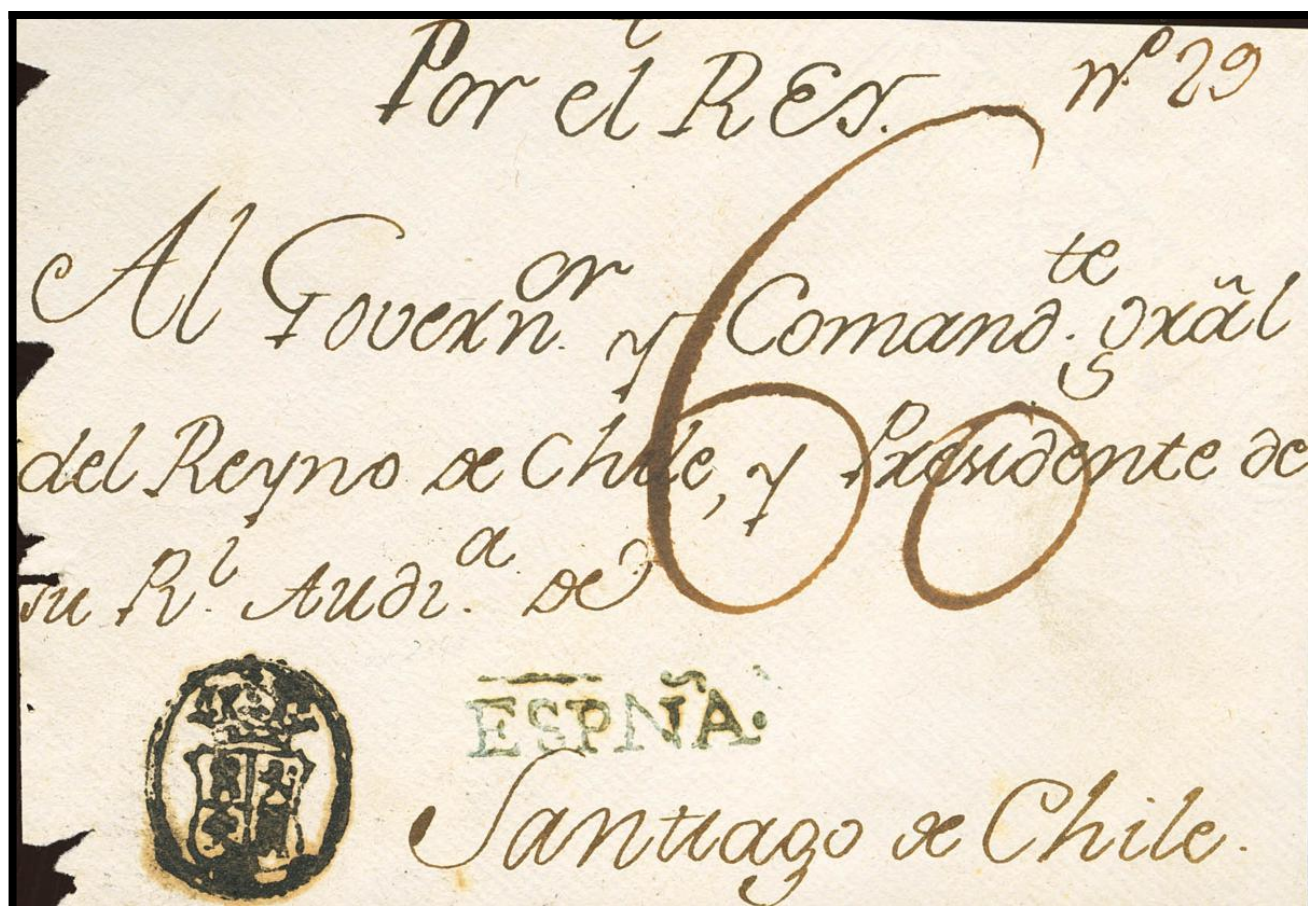 Por el REY. nº 29
Al Governor. y Comandte. gräl
del Reyno de Chile, y Presidente de
su Rl. Audia. de
60
ESPÑA.
Santiago de Chile.